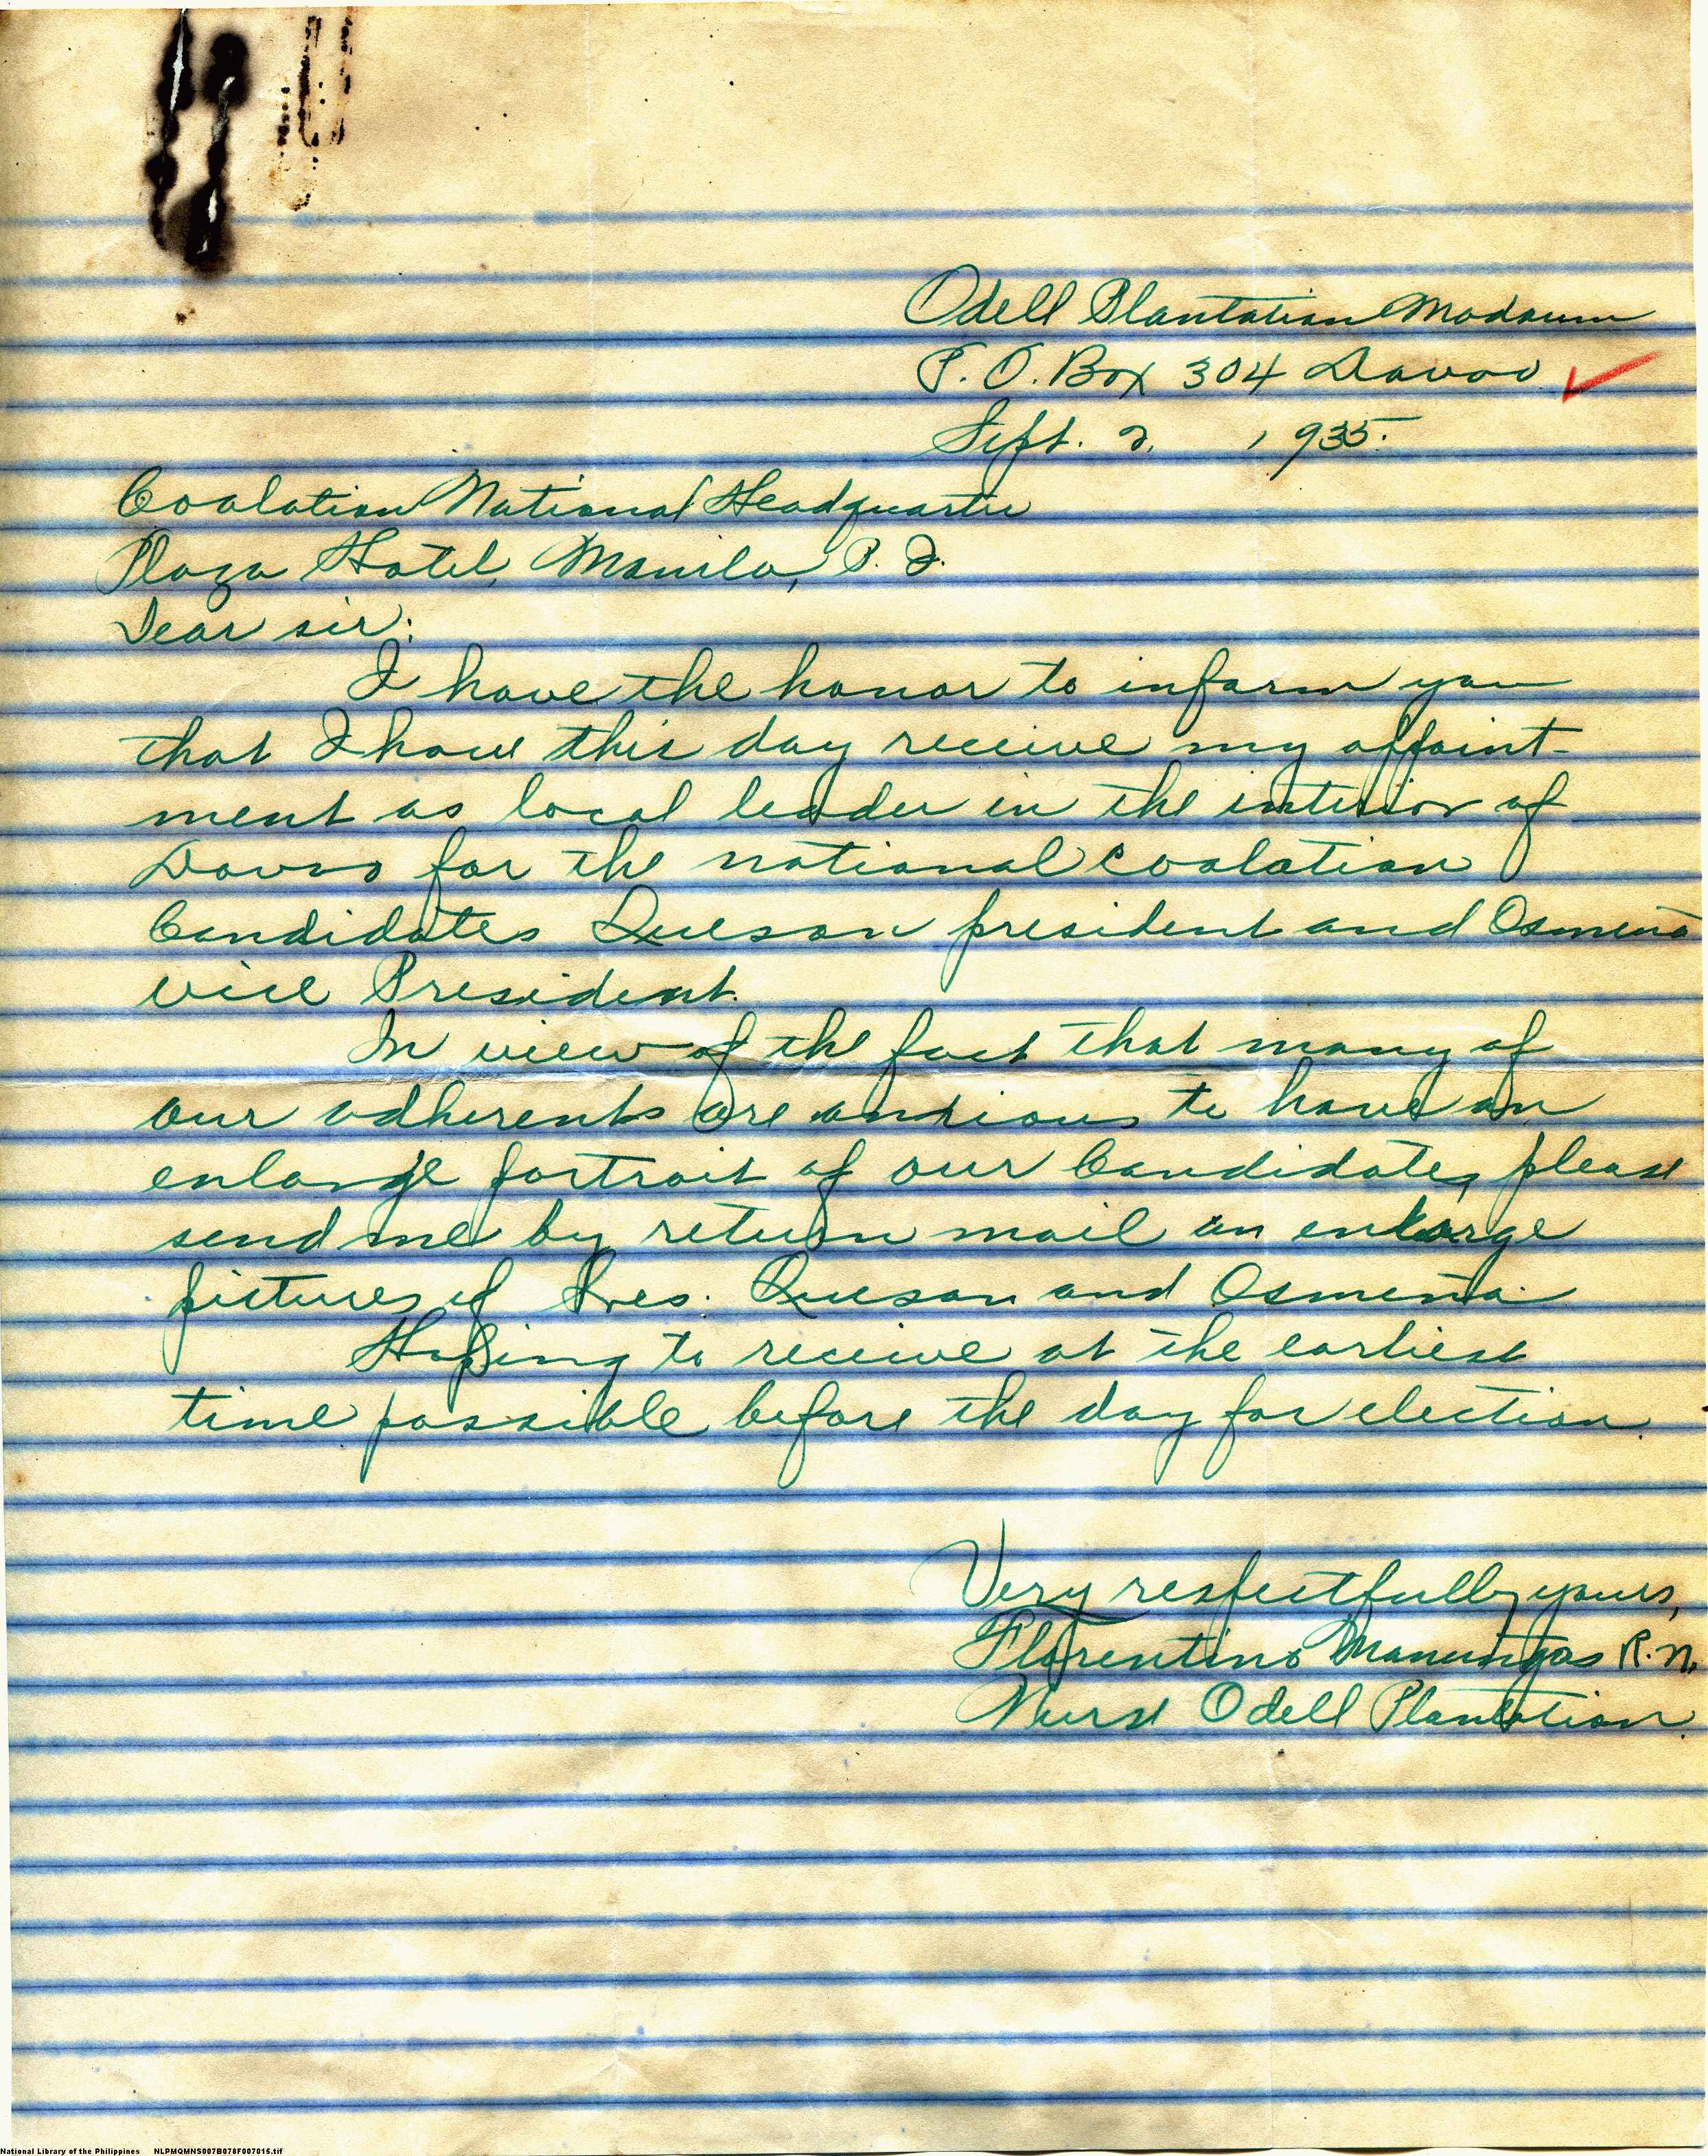 Odell Plantation Madaum
P.O. Box 304 Davao
Sept. 2, 1935.
Coalation National Headquarter
Plaza Hotel, Manila, P. I.
Dear sir:
I have the honor to inform you
that I have this day receive my appoint-
ment as local leader in the interior of
Davao for the national coalation
Candidates Queson president and Osmeña
vice President.
In view of the fact that many of
our adherents are anxious to have an
enlarge portrait of our Candidates, please
send me by return mail an enlarge
pictures of Pres. Queson and Osmeña.
Hoping to receive at the earliest
time possible before the day for election.
Very respectfully yours,
Florentino R.N.
Nurse Odell Plantation
National Library of the Philippines NLPMQMNS007B078F007015.tif